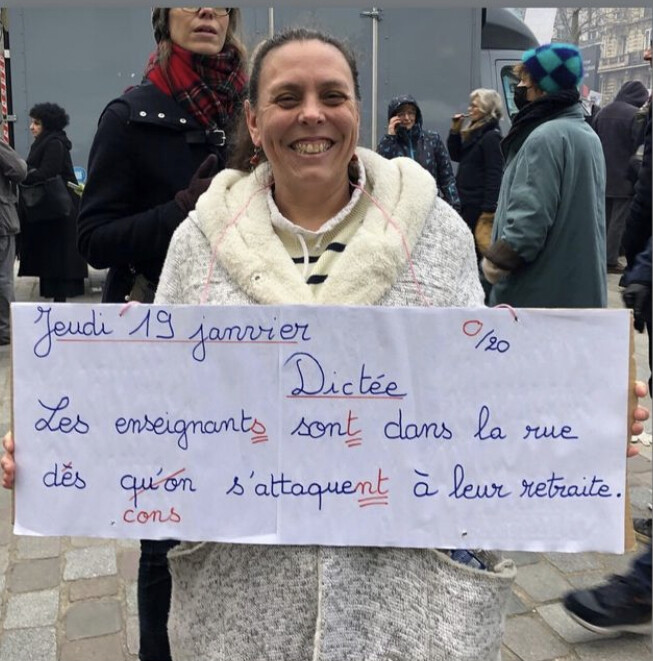 Jeudi 19 janvier
0/20
Dictée
Les enseignants sont dans la rue
dès qu'on s'attaquent à leur retraite.
cons